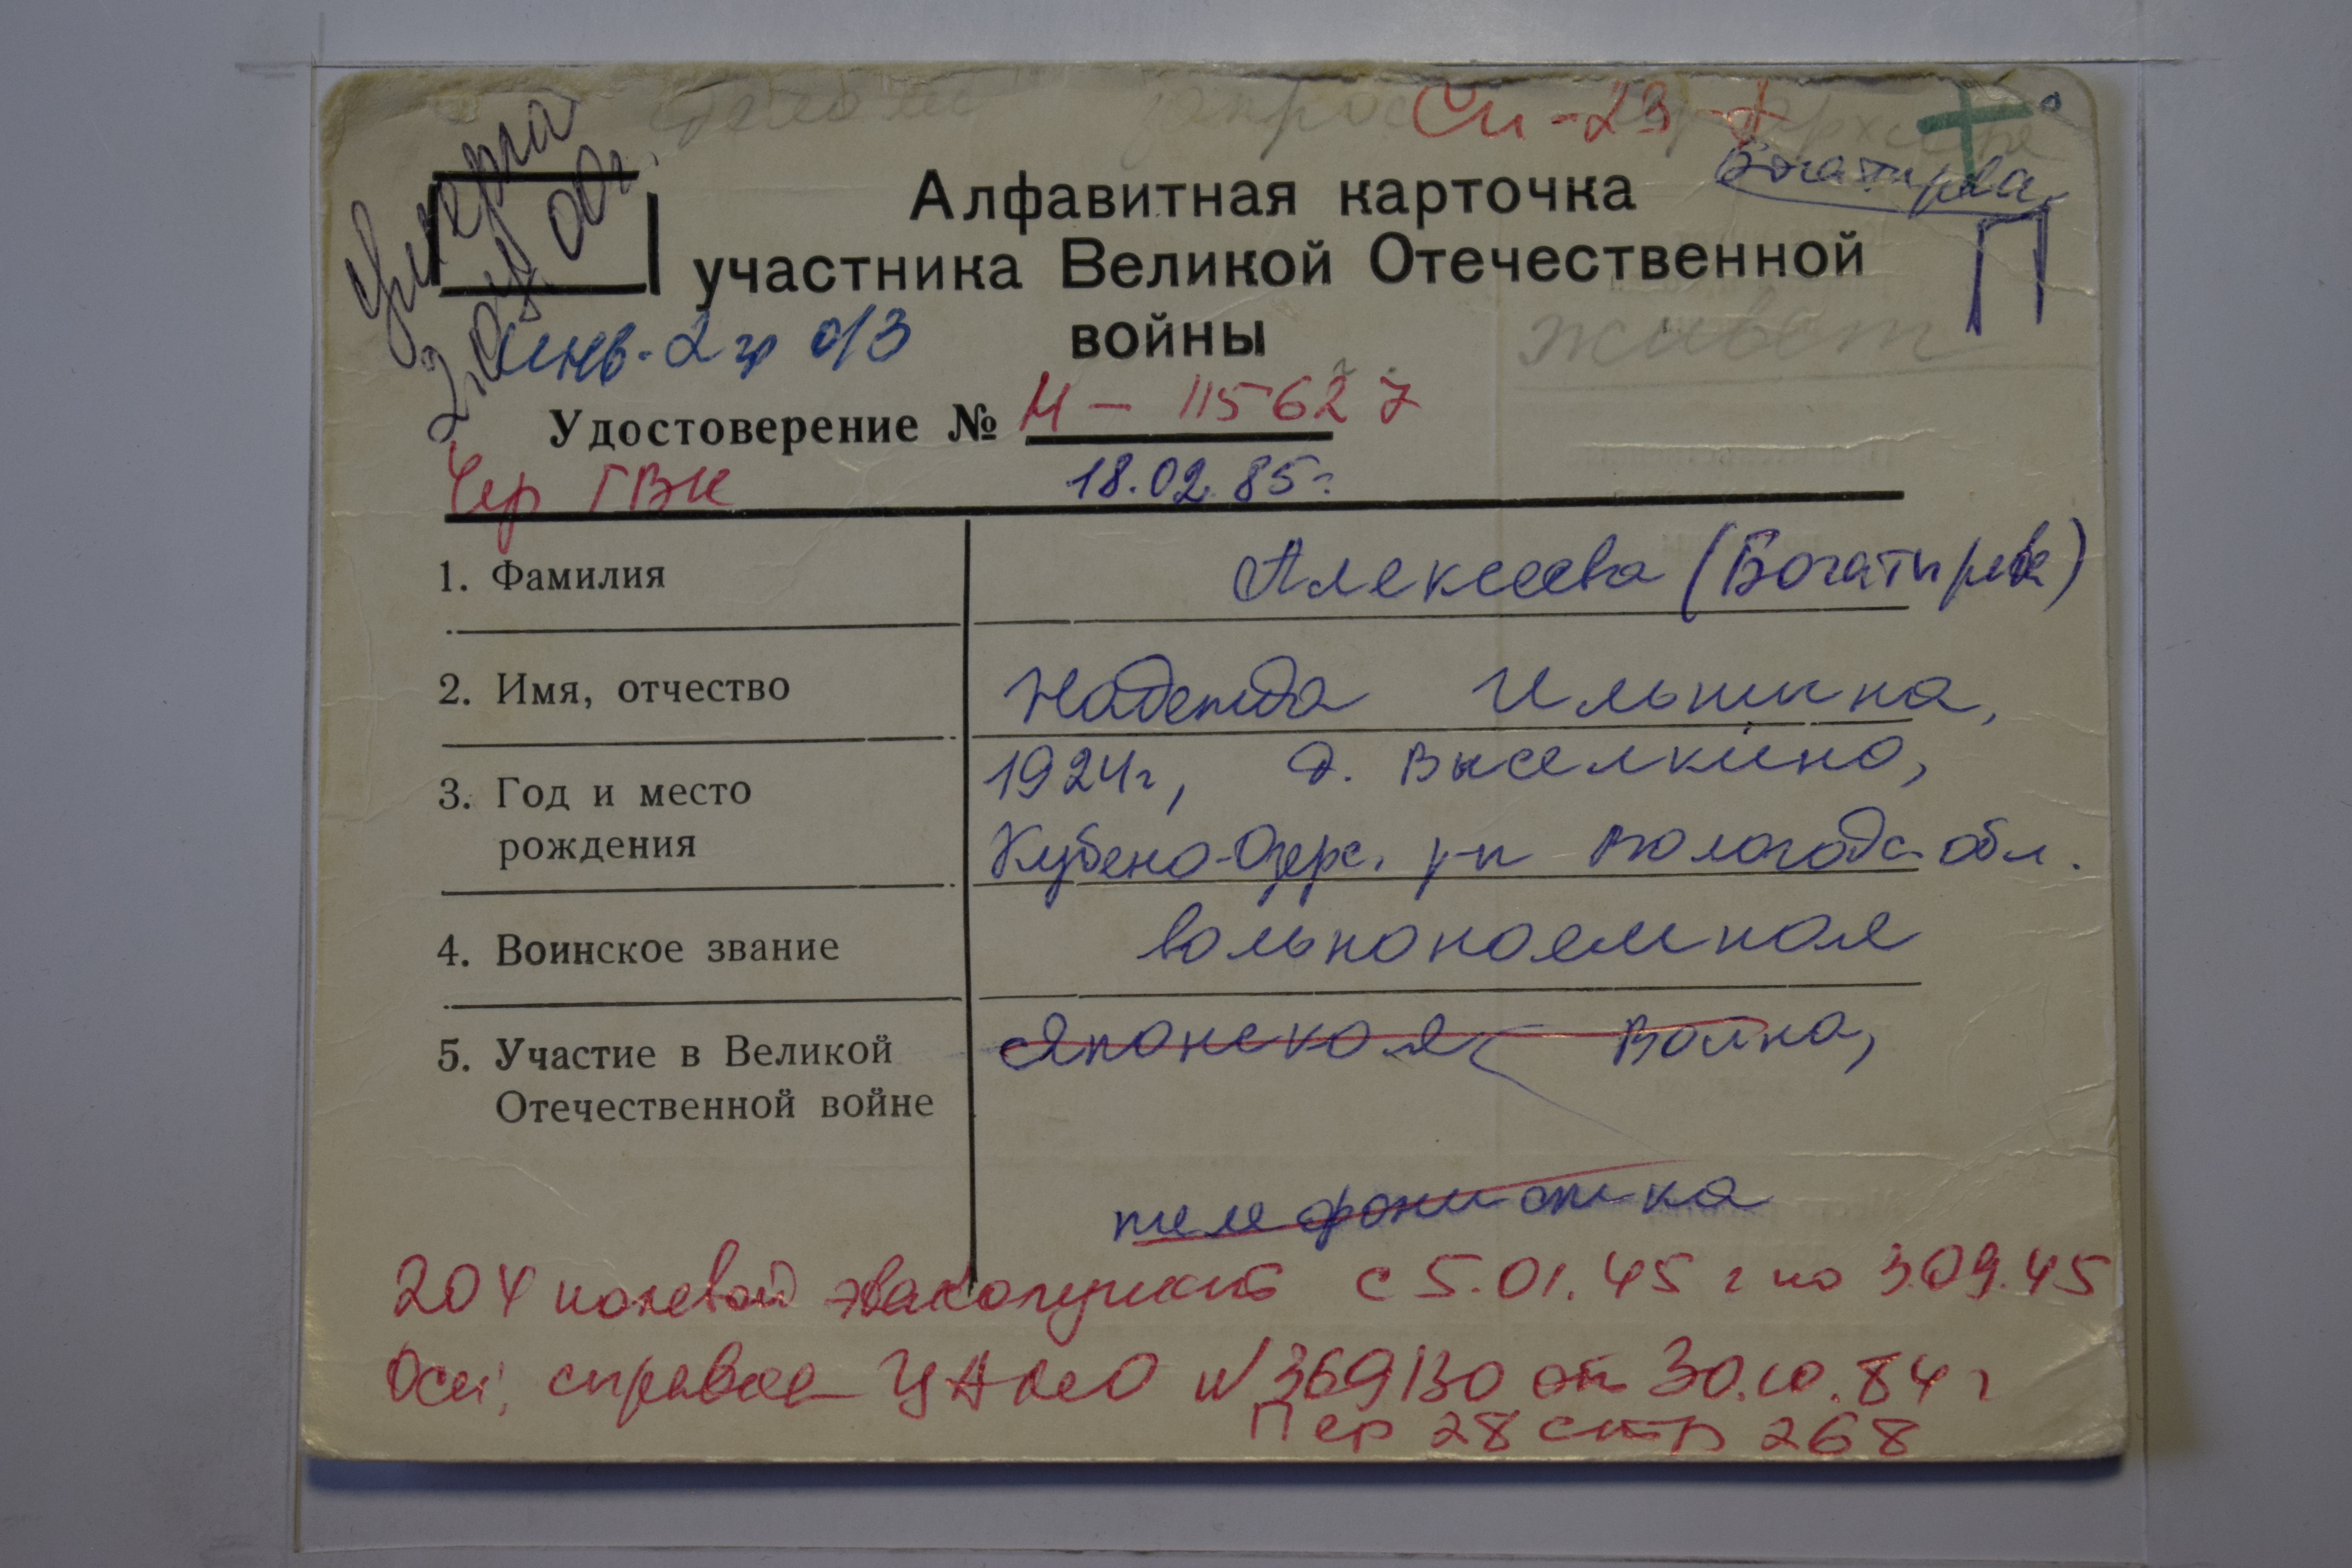 Си-23
Богатирева
умерла
Алфавитная карточка
участника Великой Отечественной
войны
П
живет
инв-2 гр о/з
Удостоверение № М - 115627
Чер ГВК
18.02.85г.
1. Фамилия
Алексеева (Богатирева)
2. Имя, отчество
Надежда Ильинична,
3. Год и место
рождения
1924г, д. Выселкино,
Кубено-Озерс. р-н Вологодс-обл.
4. Воинское звание
вольнонаемная
5. Участие в Великой
Отечественной войне
Японская война,
телефонистка
204 полевой эвакопункт с 5.01.45 г по 3.09.45
Осн; справка ЦАМО №369130 от 30.10.84 г
Пер 28 стр 268